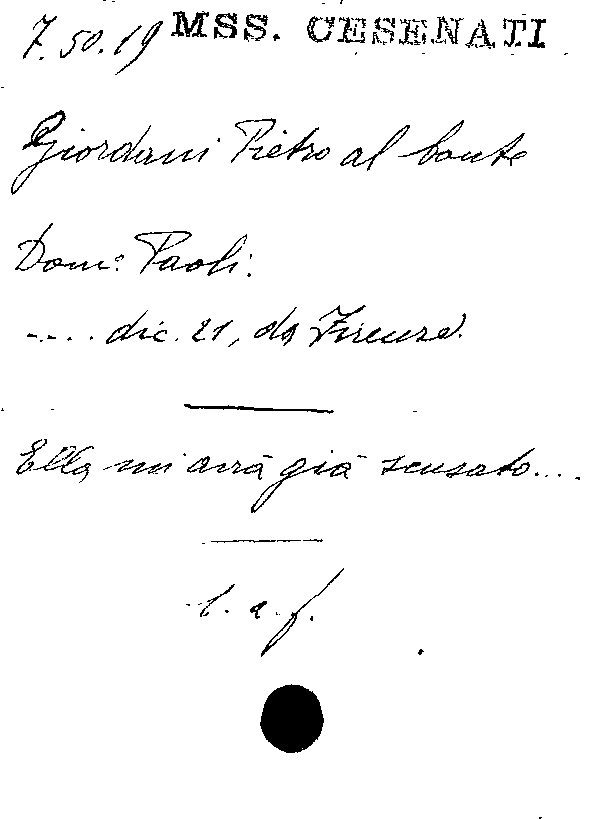 7.50.19 MSS. CESENATI
Giordani Pietro al Conte
Dom: Paoli.
.... dic. 21, da Firenze.
Ella mi avrà già scusato....
l. a. f.